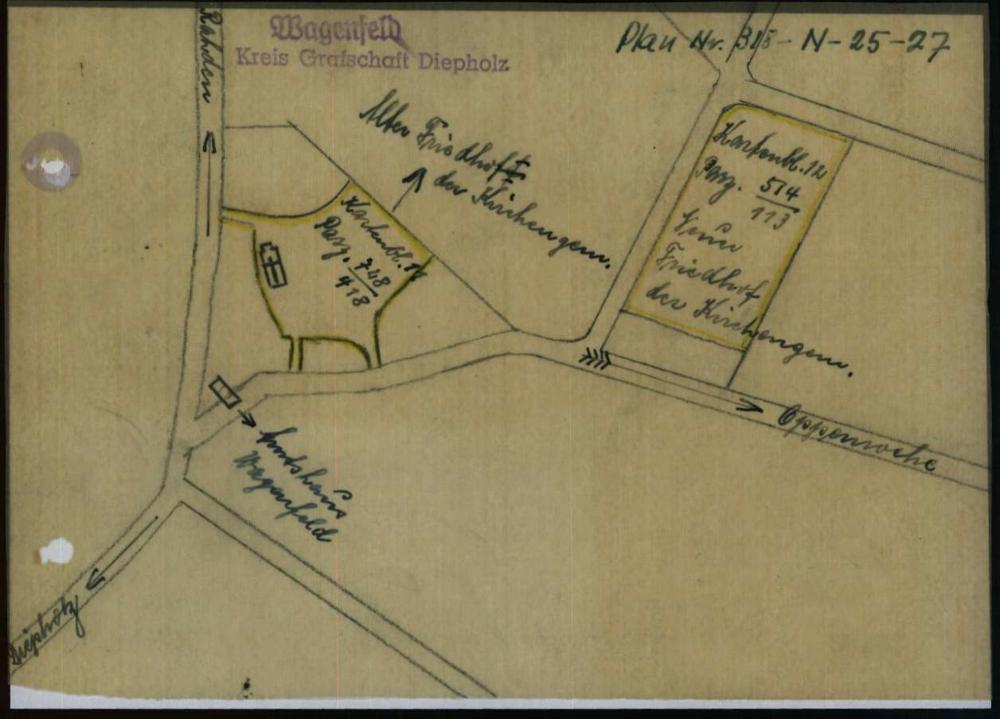 Wagenfeld
Kreis Grafschaft Diepholz
Plan Nr. 318-N-25-27
Rahden
Alter Friedhof
der Kirchengem.
Kartenbl. 12
Parz. 514
113
Neuer
Friedhof
der Kirchengem.
Kartenbl.
Parz. 748
418
Oppenwehe
Amtshaus
Wagenfeld
Diepholz